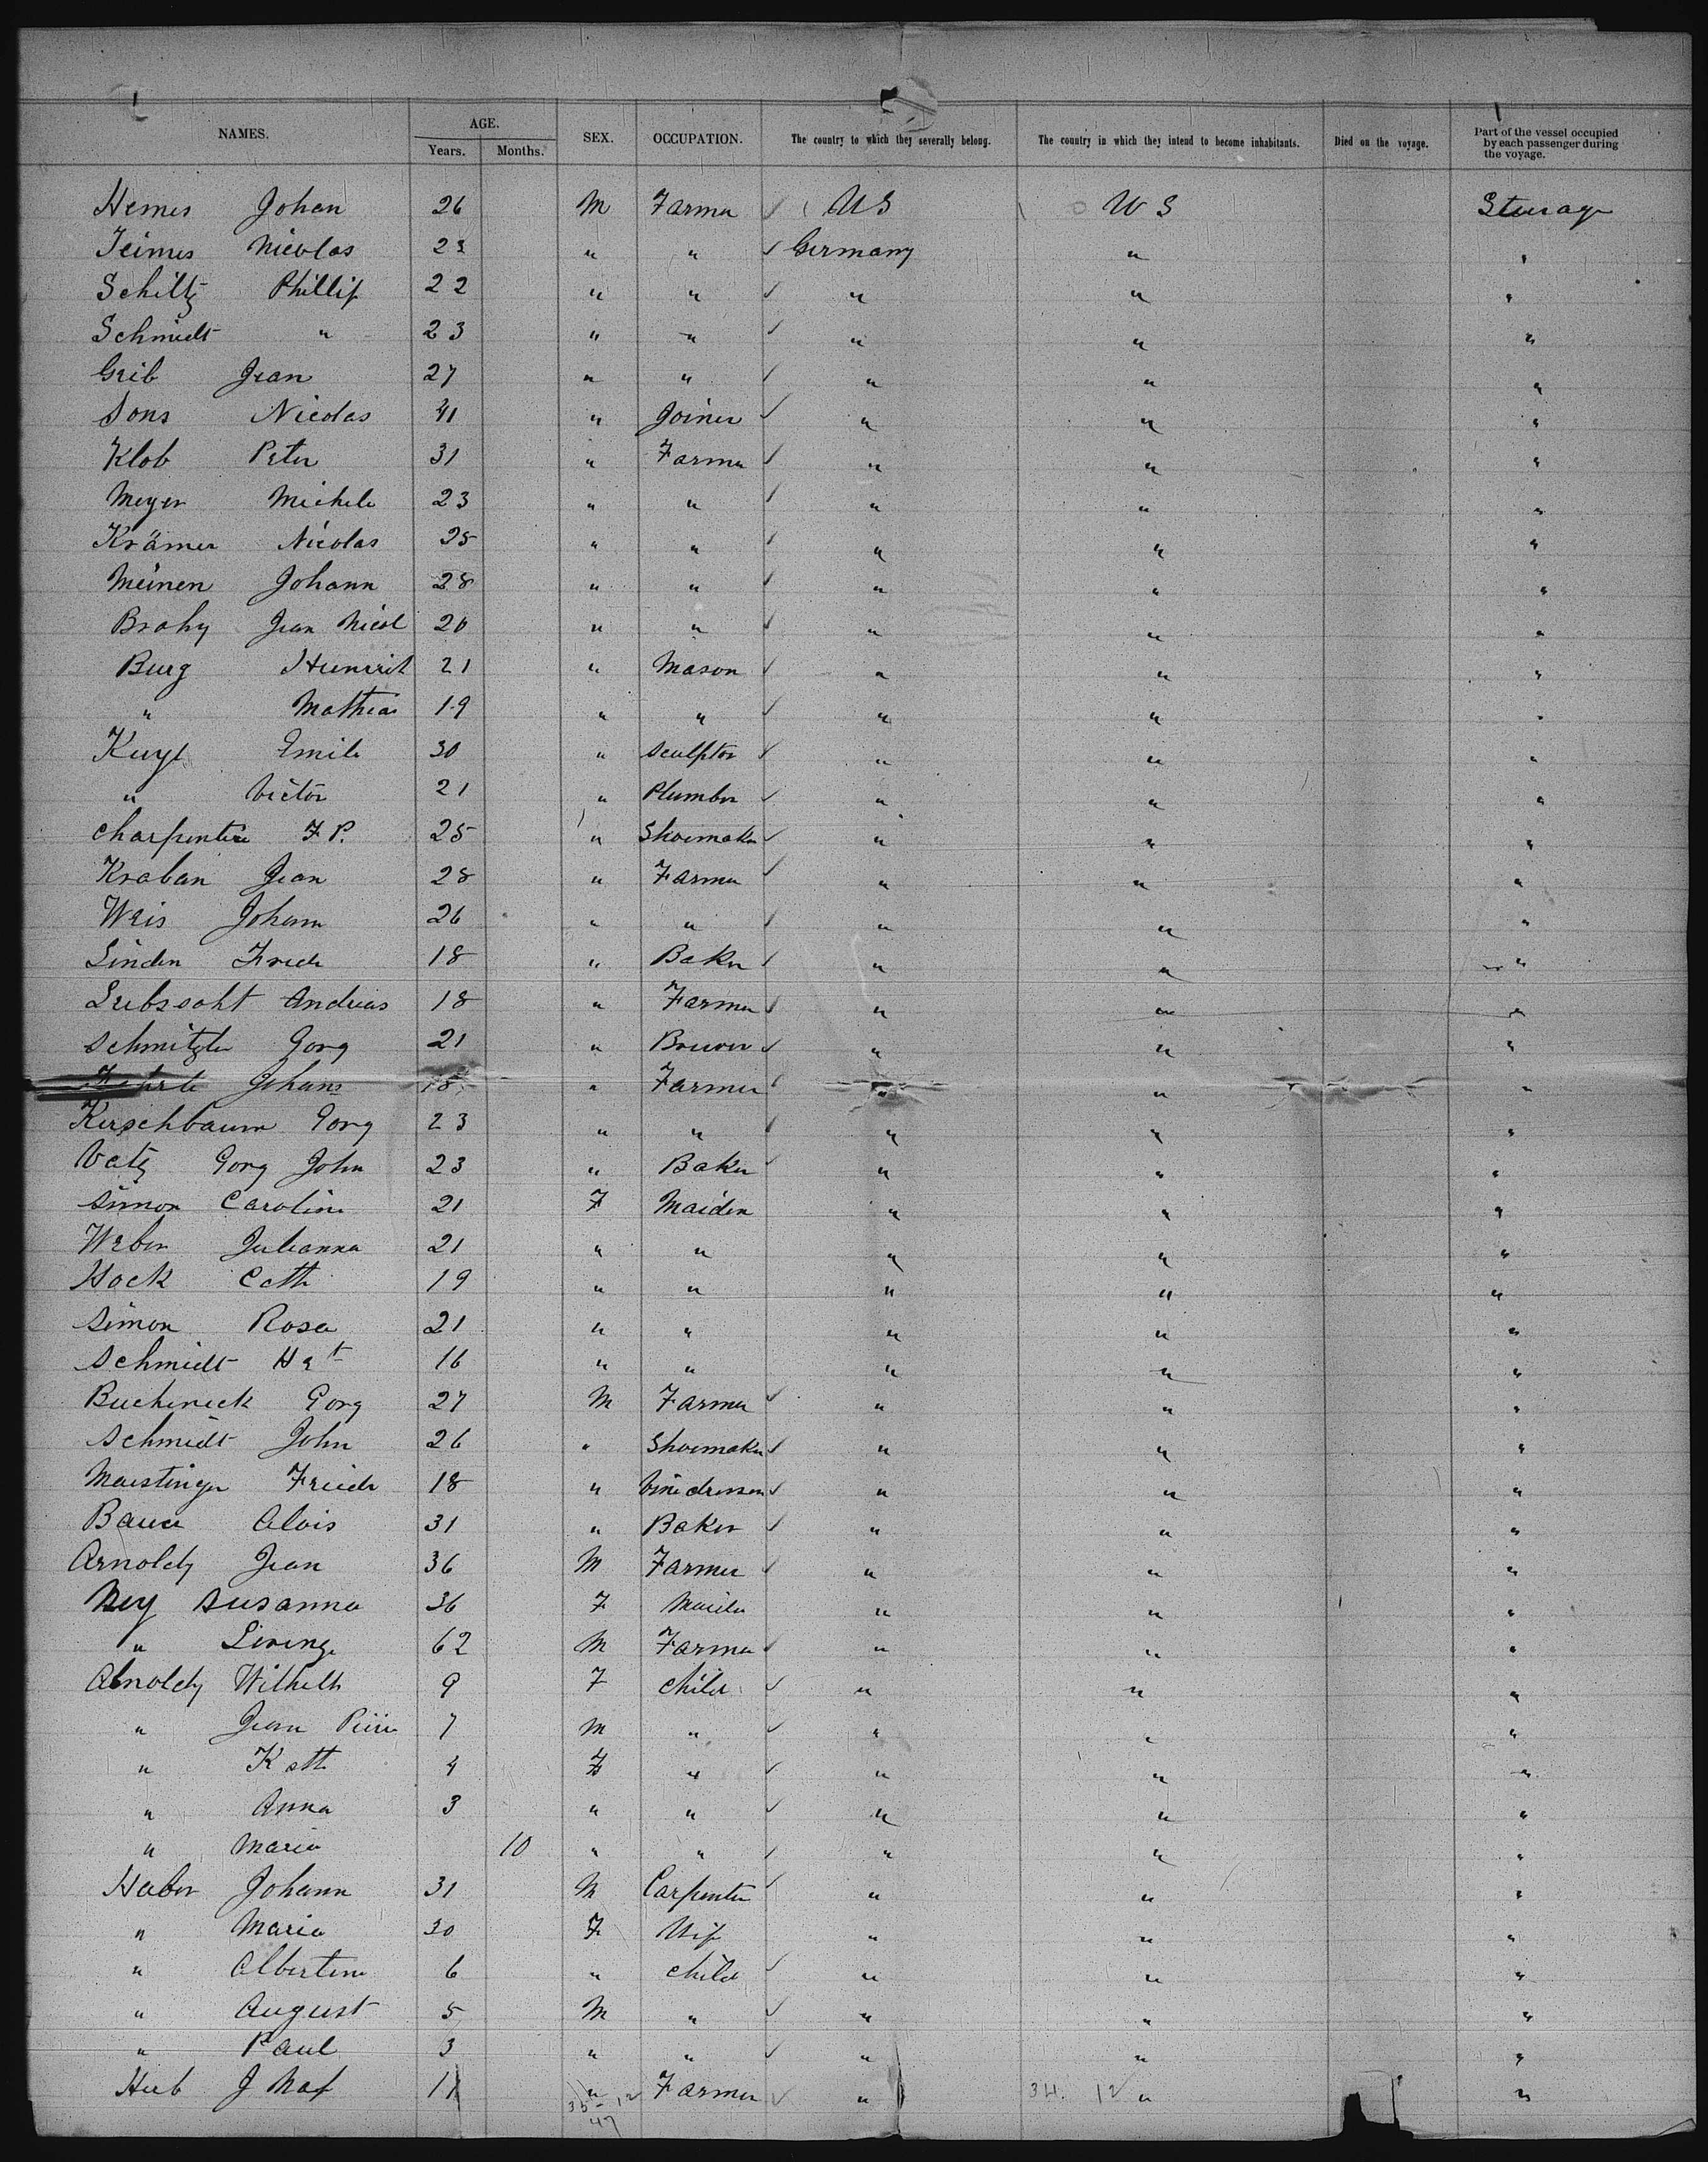 NAMES. AGE. Years. Months. SEX. OCCUPATION. The country to which they severally belong. The country in which they intend to become inhabitants. Died on the voyage. Part of the vessel occupied by each passenger during the voyage.
Hemes Johan 26 M Farmer US US Steerage
Jeimes Nicolas 23 " " Germany " "
Schiltz Phillip 22 " " " " "
Schmidt " 23 " " " " "
Greib Jean 27 " " " " "
Sons Nicolas 41 " Joiner " " "
Klob Peter 31 " Farmer " " "
Meyer Michele 23 " " " " "
Krämer Nicolas 25 " " " " "
Meinen Johann 28 " " " " "
Brahy Jean Nicol 20 " " " " "
Burg Heinrich 21 " Mason " " "
" Mathias 19 " " " " "
Emile 30 " Sculptor " " "
" Victor 21 " Plumber " " "
Charpentier F P. 25 " Shoemaker " " "
Kraban Jean 28 " Farmer " " "
Weis Johann 26 " " " " "
Linden Friedr 18 " Baker " " "
Andreas 18 " Farmer " " "
Schmitzler Gorg 21 " Brewer " " "
Johann 18 " Farmer " " "
Kirschbaum Gorg 23 " " " " "
Vatz Gorg John 23 " Baker " " "
Simon Caroline 21 F Maiden " " "
Weber Julianna 21 " " " " "
Hock Cath 19 " " " " "
Simon Rosa 21 " " " " "
Schmidt 16 " " " " "
Gorg 27 M Farmer " " "
Schmidt John 26 " Shoemaker " " "
Friedr 18 " Vinedresser " " "
Bauer Alois 31 " Baker " " "
Arnoldy Jean 36 M Farmer " " "
Ney Susanna 36 F Maiden " " "
" 62 M Farmer " " "
Arnoldy Wilhelh 9 F Child " " "
" Jean Pierre 7 M " " " "
" Kath 4 F " " " "
" Anna 3 " " " " "
" Maria 10 " " " " "
Haber Johann 31 M Carpenter " " "
" Maria 30 F Wife " " "
" Albertine 6 " Child " " "
" August 5 M " " " "
" Paul 3 " " " " "
Hub J 11 " Farmer " " "
35 - 12 34. 12
47